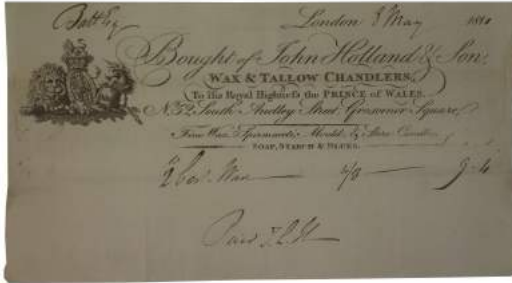 Batt Esq London 8 May 1810
Bought of John Holland & Son,
WAX & TALLOW CHANDLERS,
To His Royal Highness the PRINCE of WALES.
No. 52 South Audley Street, Grosvenor Square,
Fine Wax & Spermaceti, Mould & Store Candles
SOAP, STARCH & BLUES.
2 Wax 4/8 9-4
Paid